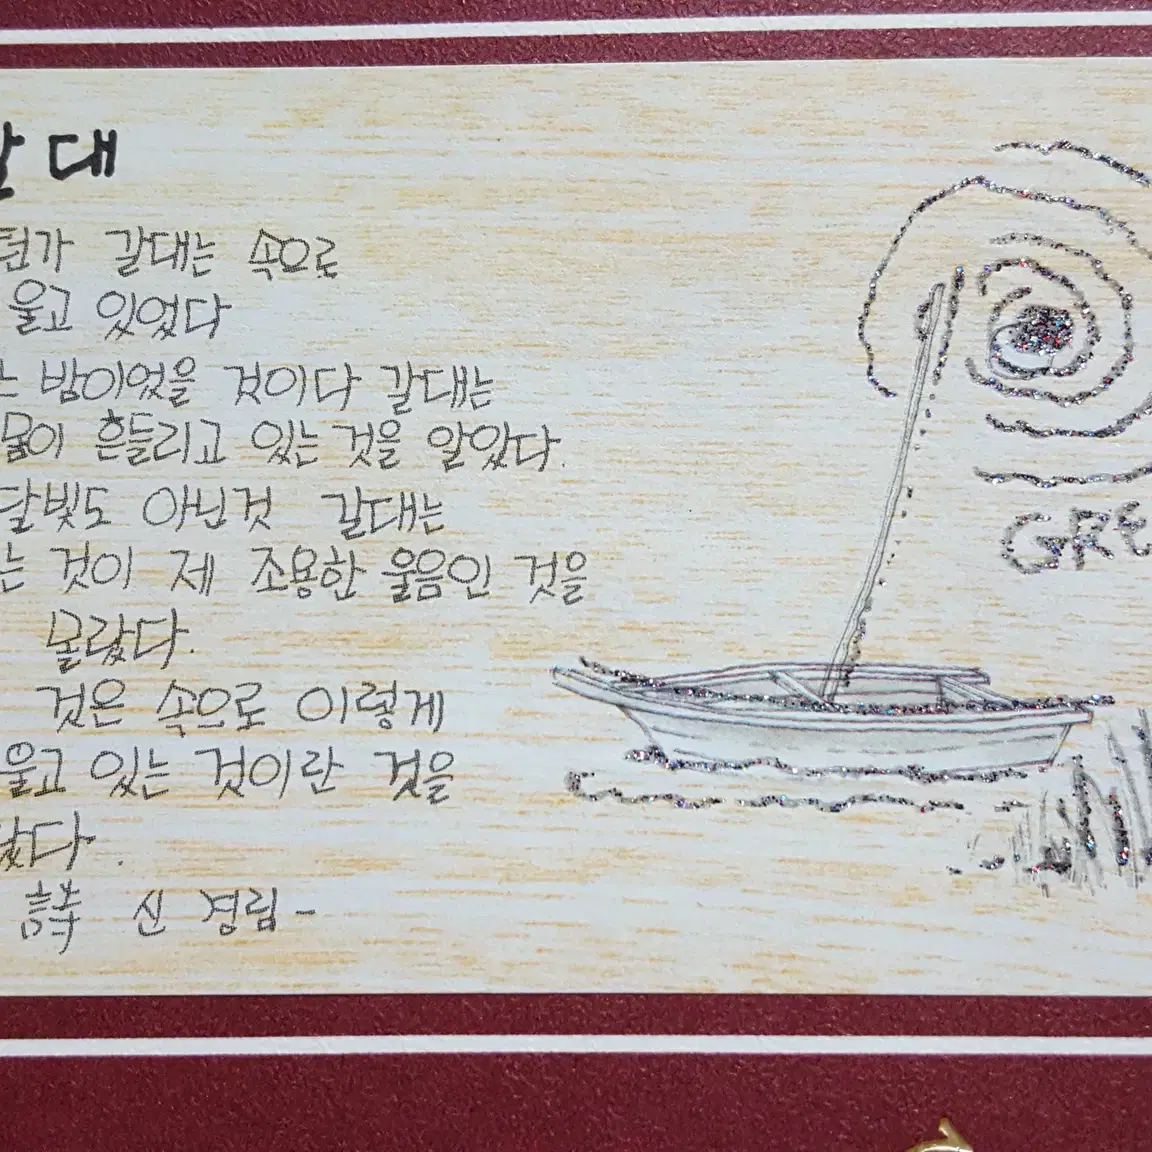 갈대
턴가 갈대는 속으로
울고 있었다
밤이었을 것이다 갈대는
몸이 흔들리고 있는 것을 알았다.
달빛도 아닌것 갈대는
는 것이 제 조용한 울음인 것을
몰랐다.
것은 속으로 이렇게
울고 있는 것이란 것을
랐다.
詩 신경림-
GRE